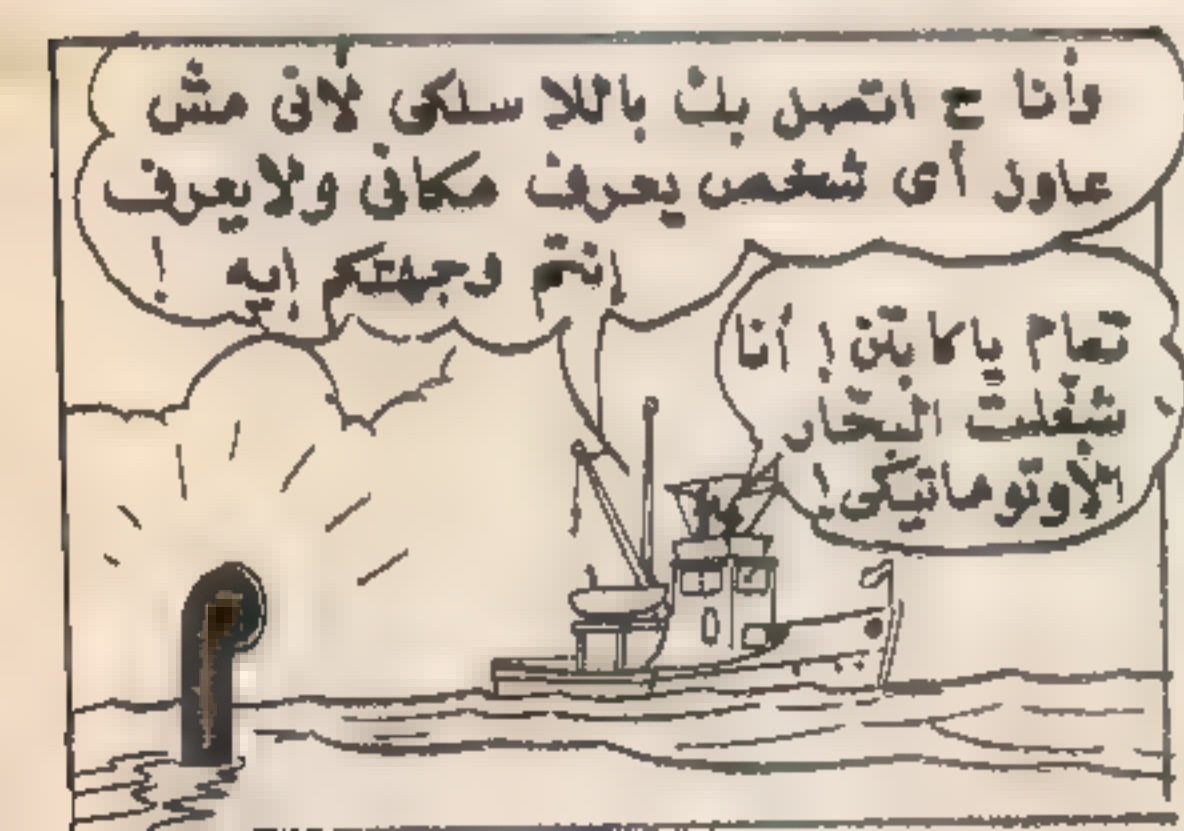 وأنا ح اتصل بك باللاسلكى لانى مش
عاوز أى شخص يعرف مكانى ولايعرف
إنتم وجهتكم إيه !
تمام ياكابتن ! أنا
شغّلت البحّار
الأوتوماتيكى !